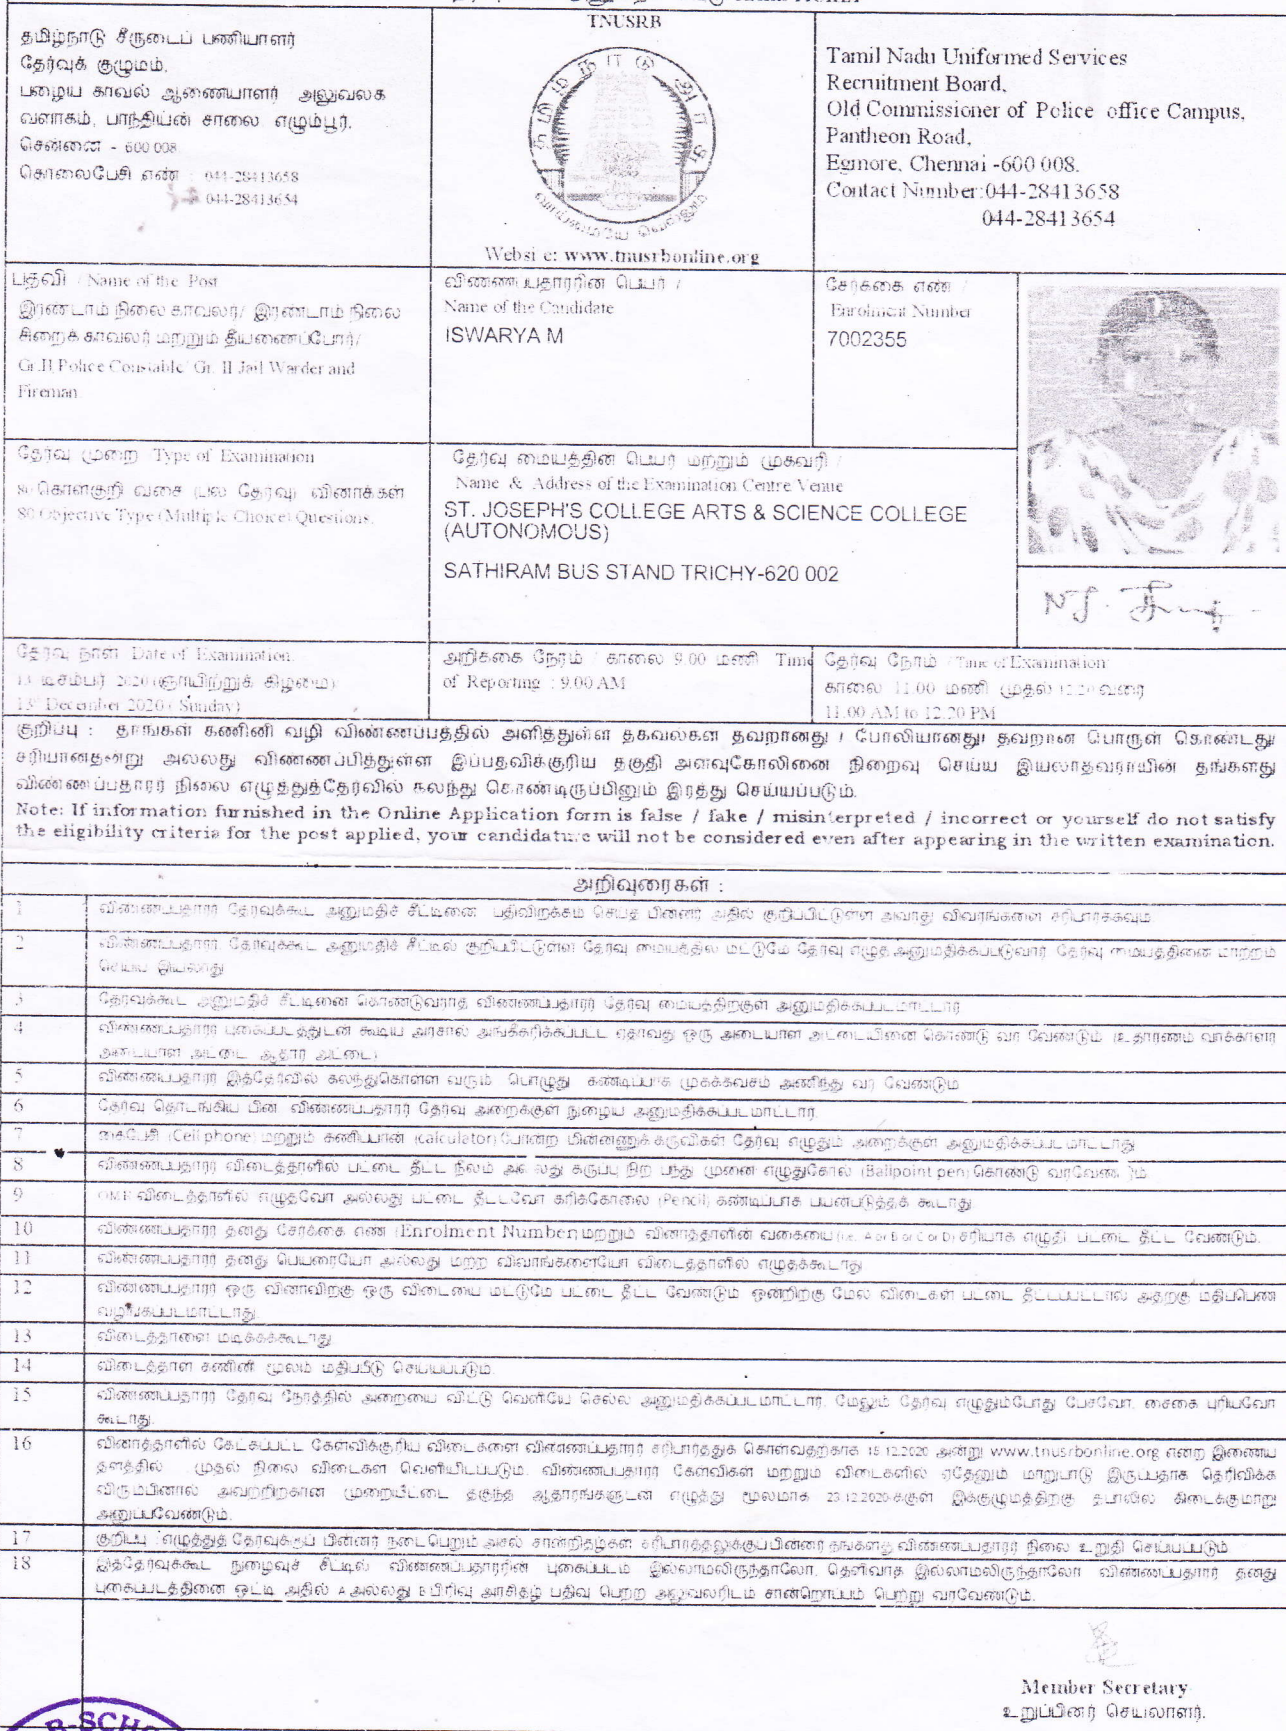 TNUSRB
தமிழ்நாடு சீருடைப் பணியாளர்
தேர்வுக் குழுமம்,
பழைய காவல் ஆணையாளர் அலுவலக
வளாகம், பாந்தியன் சாலை எழும்பூர்,
சென்னை - 600 008
தொலைபேசி எண் : 044-28413658
044-28413654
தமிழ்நாடு அரசு
வாய்மையே வெல்லும்
Websi e: www.tnusrbonline.org
Tamil Nadu Uniformed Services
Recruitment Board,
Old Commissioner of Police office Campus,
Pantheon Road,
Egmore, Chennai -600 008.
Contact Number:044-28413658
044-28413654
பதவி / Name of the Post
இரண்டாம் நிலை காவலர்/ இரண்டாம் நிலை
சிறைக் காவலர் மற்றும் தீயணைப்போர்/
Gr.II Police Constable/ Gr. II Jail Warder and
Fireman.
விண்ணப்பதாரரின் பெயர் /
Name of the Candidate
ISWARYA M
சேர்க்கை எண் /
Enrolment Number
7002355
தேர்வு முறை Type of Examination
80 கொள்குறி வகை (பல தேர்வு) வினாக்கள்
80 Objective Type (Multiple Choice) Questions.
தேர்வு மையத்தின் பெயர் மற்றும் முகவரி /
Name & Address of the Examination Centre Venue
ST. JOSEPH'S COLLEGE ARTS & SCIENCE COLLEGE
(AUTONOMOUS)
SATHIRAM BUS STAND TRICHY-620 002
தேர்வு நாள் Date of Examination.
13 டிசம்பர் 2020 (ஞாயிற்றுக் கிழமை)
13th December 2020 ( Sunday)
அறிக்கை நேரம் / காலை 9.00 மணி Time
of Reporting : 9.00 AM
தேர்வு நேரம் / Time of Examination
காலை 11.00 மணி முதல் 12.20 வரை
11.00 AM to 12.20 PM
குறிப்பு : தாங்கள் கணினி வழி விண்ணப்பத்தில் அளித்துள்ள தகவல்கள் தவறானது / போலியானது/ தவறான பொருள் கொண்டது/
சரியானதன்று அல்லது விண்ணப்பித்துள்ள இப்பதவிக்குரிய தகுதி அளவுகோலினை நிறைவு செய்ய இயலாதவராயின் தங்களது
விண்ணப்பதாரர் நிலை எழுத்துத்தேர்வில் கலந்து கொண்டிருப்பினும் இரத்து செய்யப்படும்.
Note: If information furnished in the Online Application form is false / fake / misinterpreted / incorrect or yourself do not satisfy
the eligibility criteria for the post applied, your candidature will not be considered even after appearing in the written examination.
அறிவுரைகள் :
1 விண்ணப்பதாரர் தேர்வுக்கூட அனுமதிச் சீட்டினை பதிவிறக்கம் செய்த பின்னர் அதில் குறிப்பிட்டுள்ள அவரது விவரங்களை சரிபார்க்கவும்
2 விண்ணப்பதாரர் தேர்வுக்கூட அனுமதிச் சீட்டில் குறிப்பிட்டுள்ள தேர்வு மையத்தில் மட்டுமே தேர்வு எழுத அனுமதிக்கப்படுவார். தேர்வு மையத்தினை மாற்றம்
செய்ய இயலாது
3 தேர்வுக்கூட அனுமதிச் சீட்டினை கொண்டுவராத விண்ணப்பதாரர் தேர்வு மையத்திற்குள் அனுமதிக்கப்படமாட்டார்
4 விண்ணப்பதாரர் புகைப்படத்துடன் கூடிய அரசால் அங்கீகரிக்கப்பட்ட ஏதாவது ஒரு அடையாள அட்டையினை கொண்டு வர வேண்டும் (உதாரணம் வாக்காளர்
அடையாள அட்டை ஆதார் அட்டை)
5 விண்ணப்பதாரர் இத்தேர்வில் கலந்துகொள்ள வரும் பொழுது கண்டிப்பாக முகக்கவசம் அணிந்து வர வேண்டும்
6 தேர்வு தொடங்கிய பின் விண்ணப்பதாரர் தேர்வு அறைக்குள் நுழைய அனுமதிக்கப்படமாட்டார்.
7 கைபேசி (Cell phone) மற்றும் கணிப்பான் (calculator) போன்ற மின்னணுக் கருவிகள் தேர்வு எழுதும் அறைக்குள் அனுமதிக்கப்படமாட்டாது
8 விண்ணப்பதாரர் விடைத்தாளில் பட்டை தீட்ட நீலம் அல்லது கருப்பு நிற பந்து முனை எழுதுகோல் (Ballpoint pen) கொண்டு வரவேண்டும்.
9 OMR விடைத்தாளில் எழுதவோ அல்லது பட்டை தீட்டவோ கரிக்கோலை (Pencil) கண்டிப்பாக பயன்படுத்தக் கூடாது
10 விண்ணப்பதாரர் தனது சேர்க்கை எண் (Enrolment Number) மற்றும் வினாத்தாளின் வகையை (i.e. A or B or C or D) சரியாக எழுதி பட்டை தீட்ட வேண்டும்.
11 விண்ணப்பதாரர் தனது பெயரையோ அல்லது மற்ற விவரங்களையோ விடைத்தாளில் எழுதக்கூடாது
12 விண்ணப்பதாரர் ஒரு வினாவிற்கு ஒரு விடையை மட்டுமே பட்டை தீட்ட வேண்டும் ஒன்றிற்கு மேல் விடைகள் பட்டை தீட்டப்பட்டால் அதற்கு மதிப்பெண்
வழங்கப்படமாட்டாது.
13 விடைத்தாளை மடிக்கக்கூடாது
14 விடைத்தாள் கணினி மூலம் மதிப்பீடு செய்யப்படும்.
15 விண்ணப்பதாரர் தேர்வு நேரத்தில் அறையை விட்டு வெளியே செல்ல அனுமதிக்கப்படமாட்டார். மேலும் தேர்வு எழுதும்போது பேசவோ, சைகை புரியவோ
கூடாது.
16 வினாத்தாளில் கேட்கப்பட்ட கேள்விக்குரிய விடைகளை விண்ணப்பதாரர் சரிபார்த்துக் கொள்வதற்காக 15.12.2020 அன்று www.tnusrbonline.org என்ற இணைய
தளத்தில் முதல் நிலை விடைகள் வெளியிடப்படும். விண்ணப்பதாரர் கேள்விகள் மற்றும் விடைகளில் ஏதேனும் மாறுபாடு இருப்பதாக தெரிவிக்க
விரும்பினால் அவற்றிற்கான முறையீட்டை தகுந்த ஆதாரங்களுடன் எழுத்து மூலமாக 23.12.2020-க்குள் இக்குழுமத்திற்கு தபாலில் கிடைக்குமாறு
அனுப்பவேண்டும்.
17 குறிப்பு : எழுத்துத் தேர்வுக்குப் பின்னர் நடைபெறும் அசல் சான்றிதழ்கள் சரிபார்த்தலுக்குப்பின்னரே தங்களது விண்ணப்பதாரர் நிலை உறுதி செய்யப்படும்
18 இத்தேர்வுக்கூட நுழைவுச் சீட்டில் விண்ணப்பதாரரின் புகைப்படம் இல்லாமலிருந்தாலோ, தெளிவாக இல்லாமலிருந்தாலோ விண்ணப்பதாரர் தனது
புகைப்படத்தினை ஒட்டி அதில் A அல்லது B பிரிவு அரசிதழ் பதிவு பெற்ற அலுவலரிடம் சான்றொப்பம் பெற்று வரவேண்டும்.
Member Secretary
உறுப்பினர் செயலாளர்.
R-SCHO